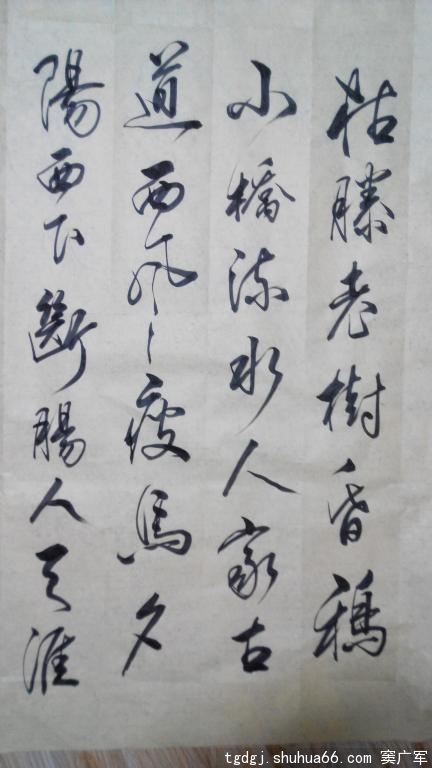 枯滕老樹昏鴉
小橋流水人家古
道西风瘦馬夕
陽西下斷腸人天涯
tgdgj.shuhua66.com 窦广军